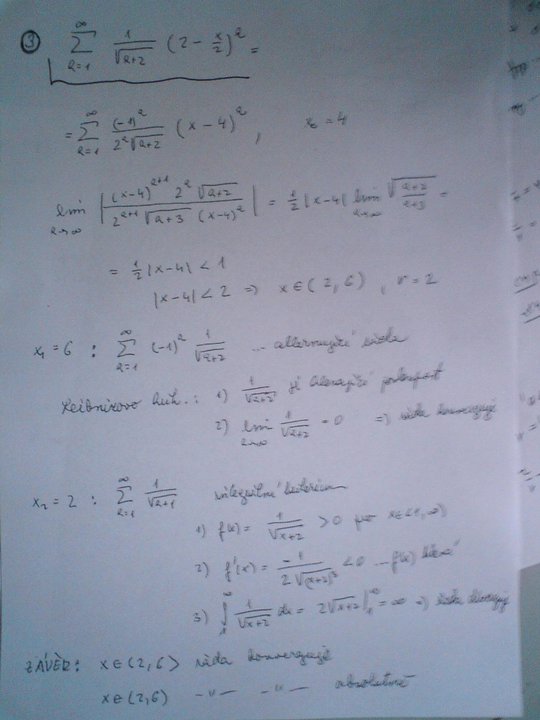 ③ ∑_{k=1}^{∞} 1/√(k+2) (2 - x/2)^k =
= ∑_{k=1}^{∞} (-1)^k / (2^k √(k+2)) (x-4)^k , x₀ = 4
lim_{k→∞} | (x-4)^{k+1} 2^k √(k+2) / (2^{k+1} √(k+3) (x-4)^k) | = 1/2 |x-4| lim_{k→∞} √((k+2)/(k+3)) =
= 1/2 |x-4| < 1
|x-4| < 2 ⇒ x ∈ (2,6) , r = 2
x₁ = 6 : ∑_{k=1}^{∞} (-1)^k 1/√(k+2) ... alternující řada
Leibnizovo krit.: 1) 1/√(k+2) je klesající posloupnost
2) lim_{k→∞} 1/√(k+2) = 0 ⇒ řada konverguje
x₂ = 2 : ∑_{k=1}^{∞} 1/√(k+1) integrální kritérium
1) f(x) = 1/√(x+2) > 0 pro x∈<1,∞)
2) f'(x) = -1 / (2√(x+2)³) < 0 ... f(x) klesá
3) ∫_1^∞ 1/√(x+2) dx = 2√(x+2) |_1^∞ = ∞ ⇒ řada diverguje
ZÁVĚR: x∈(2,6> řada konverguje
x∈(2,6) -"- -"- absolutně